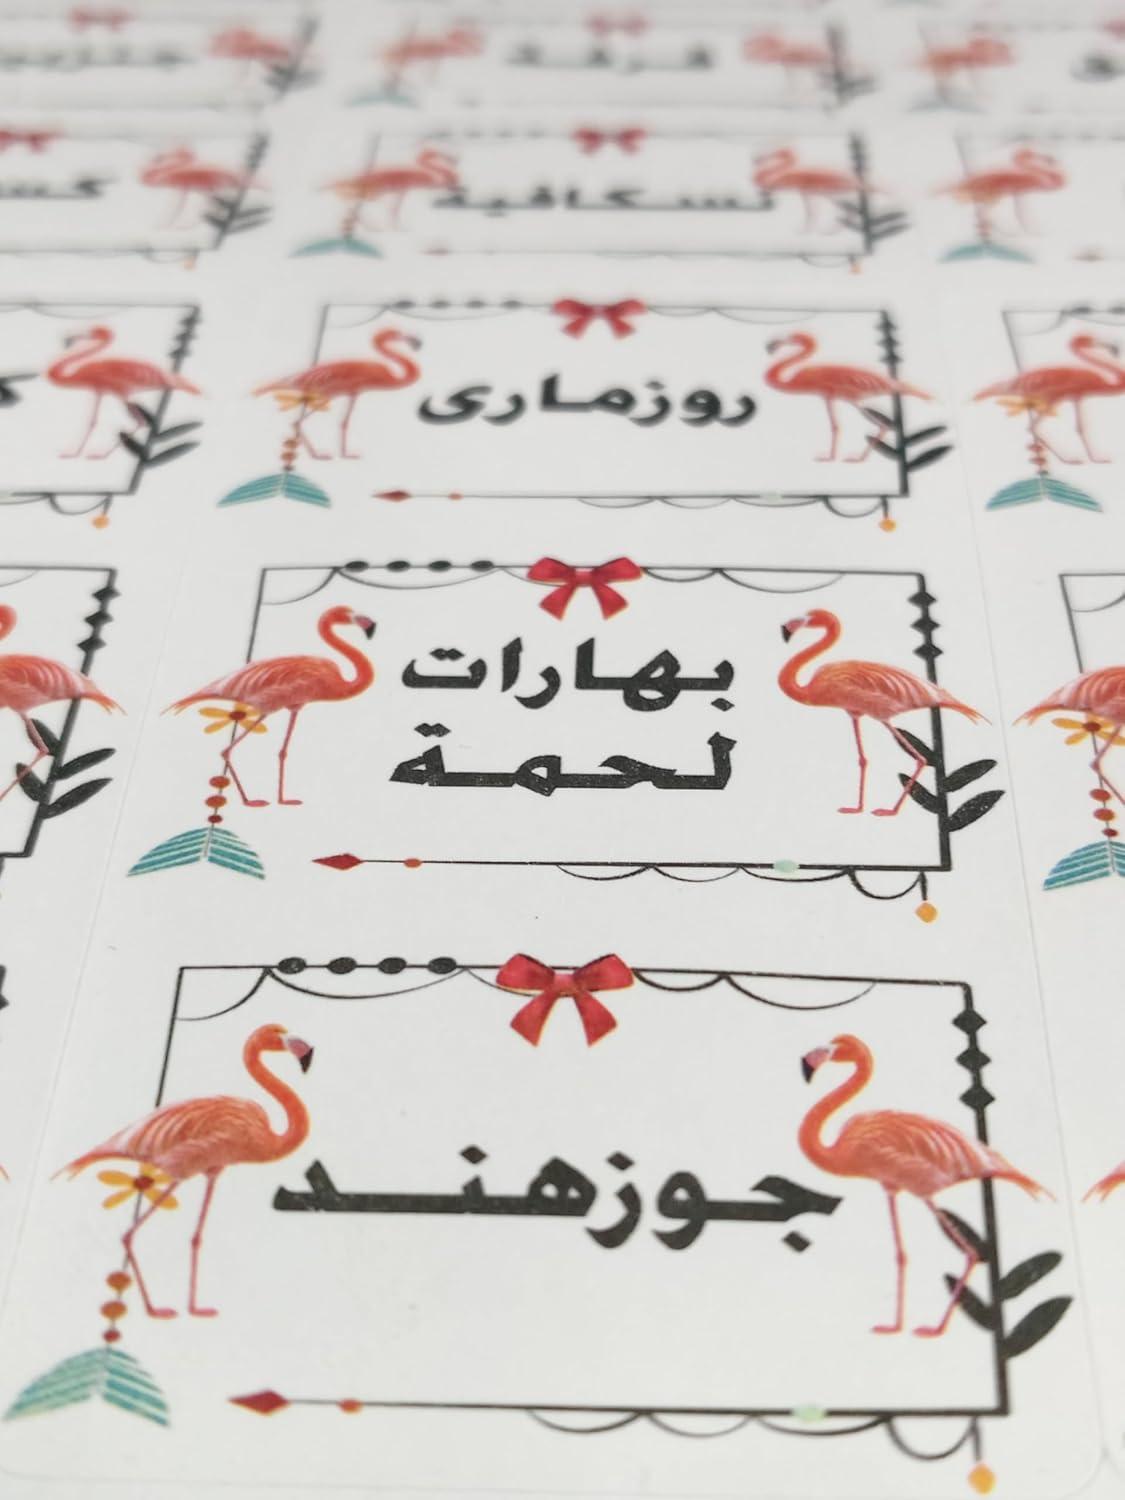 قرفة
نسكافية
روزمارى
بهارات
لحمة
جوزهند